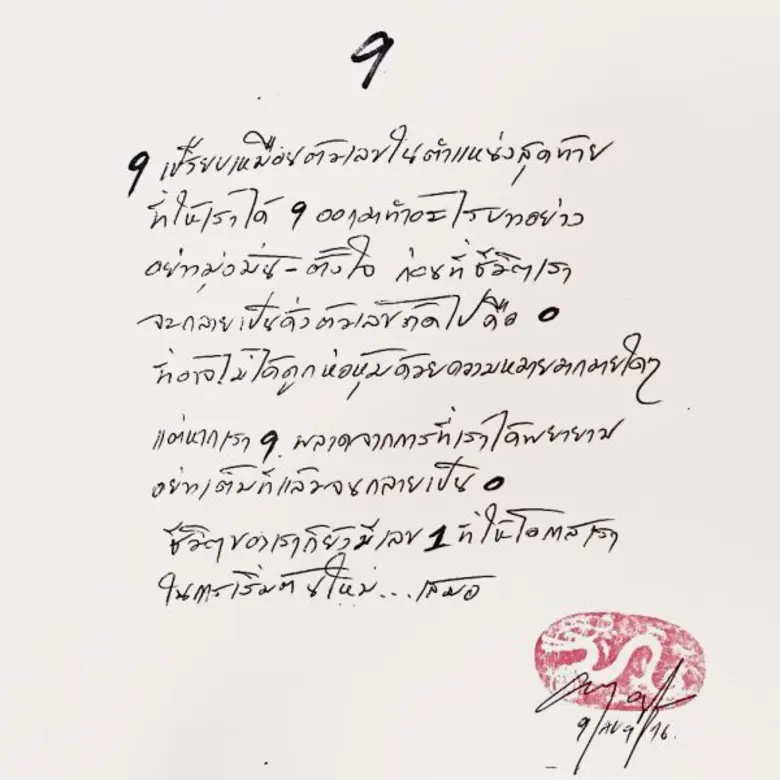 9
9 เปรียบเหมือนตัวเลขในตำแหน่งสุดท้าย
ที่ให้เราได้ 9 ออกมาทำอะไรบางอย่าง
อย่างมุ่งมั่น - ตั้งใจ ก่อนที่ชีวิตเรา
จะกลายเป็นดั่งตัวเลขถัดไปคือ 0
ที่อาจไม่ได้ถูกห่อหุ้มด้วยความหมายมากมายใดๆ
แต่หากเรา 9 พลาดจากการที่เราได้พยายาม
อย่างเต็มที่แล้วจนกลายเป็น 0
ชีวิตของเราก็ยังมีเลข 1 ที่ให้โอกาสเรา
ในการเริ่มต้นใหม่...เสมอ